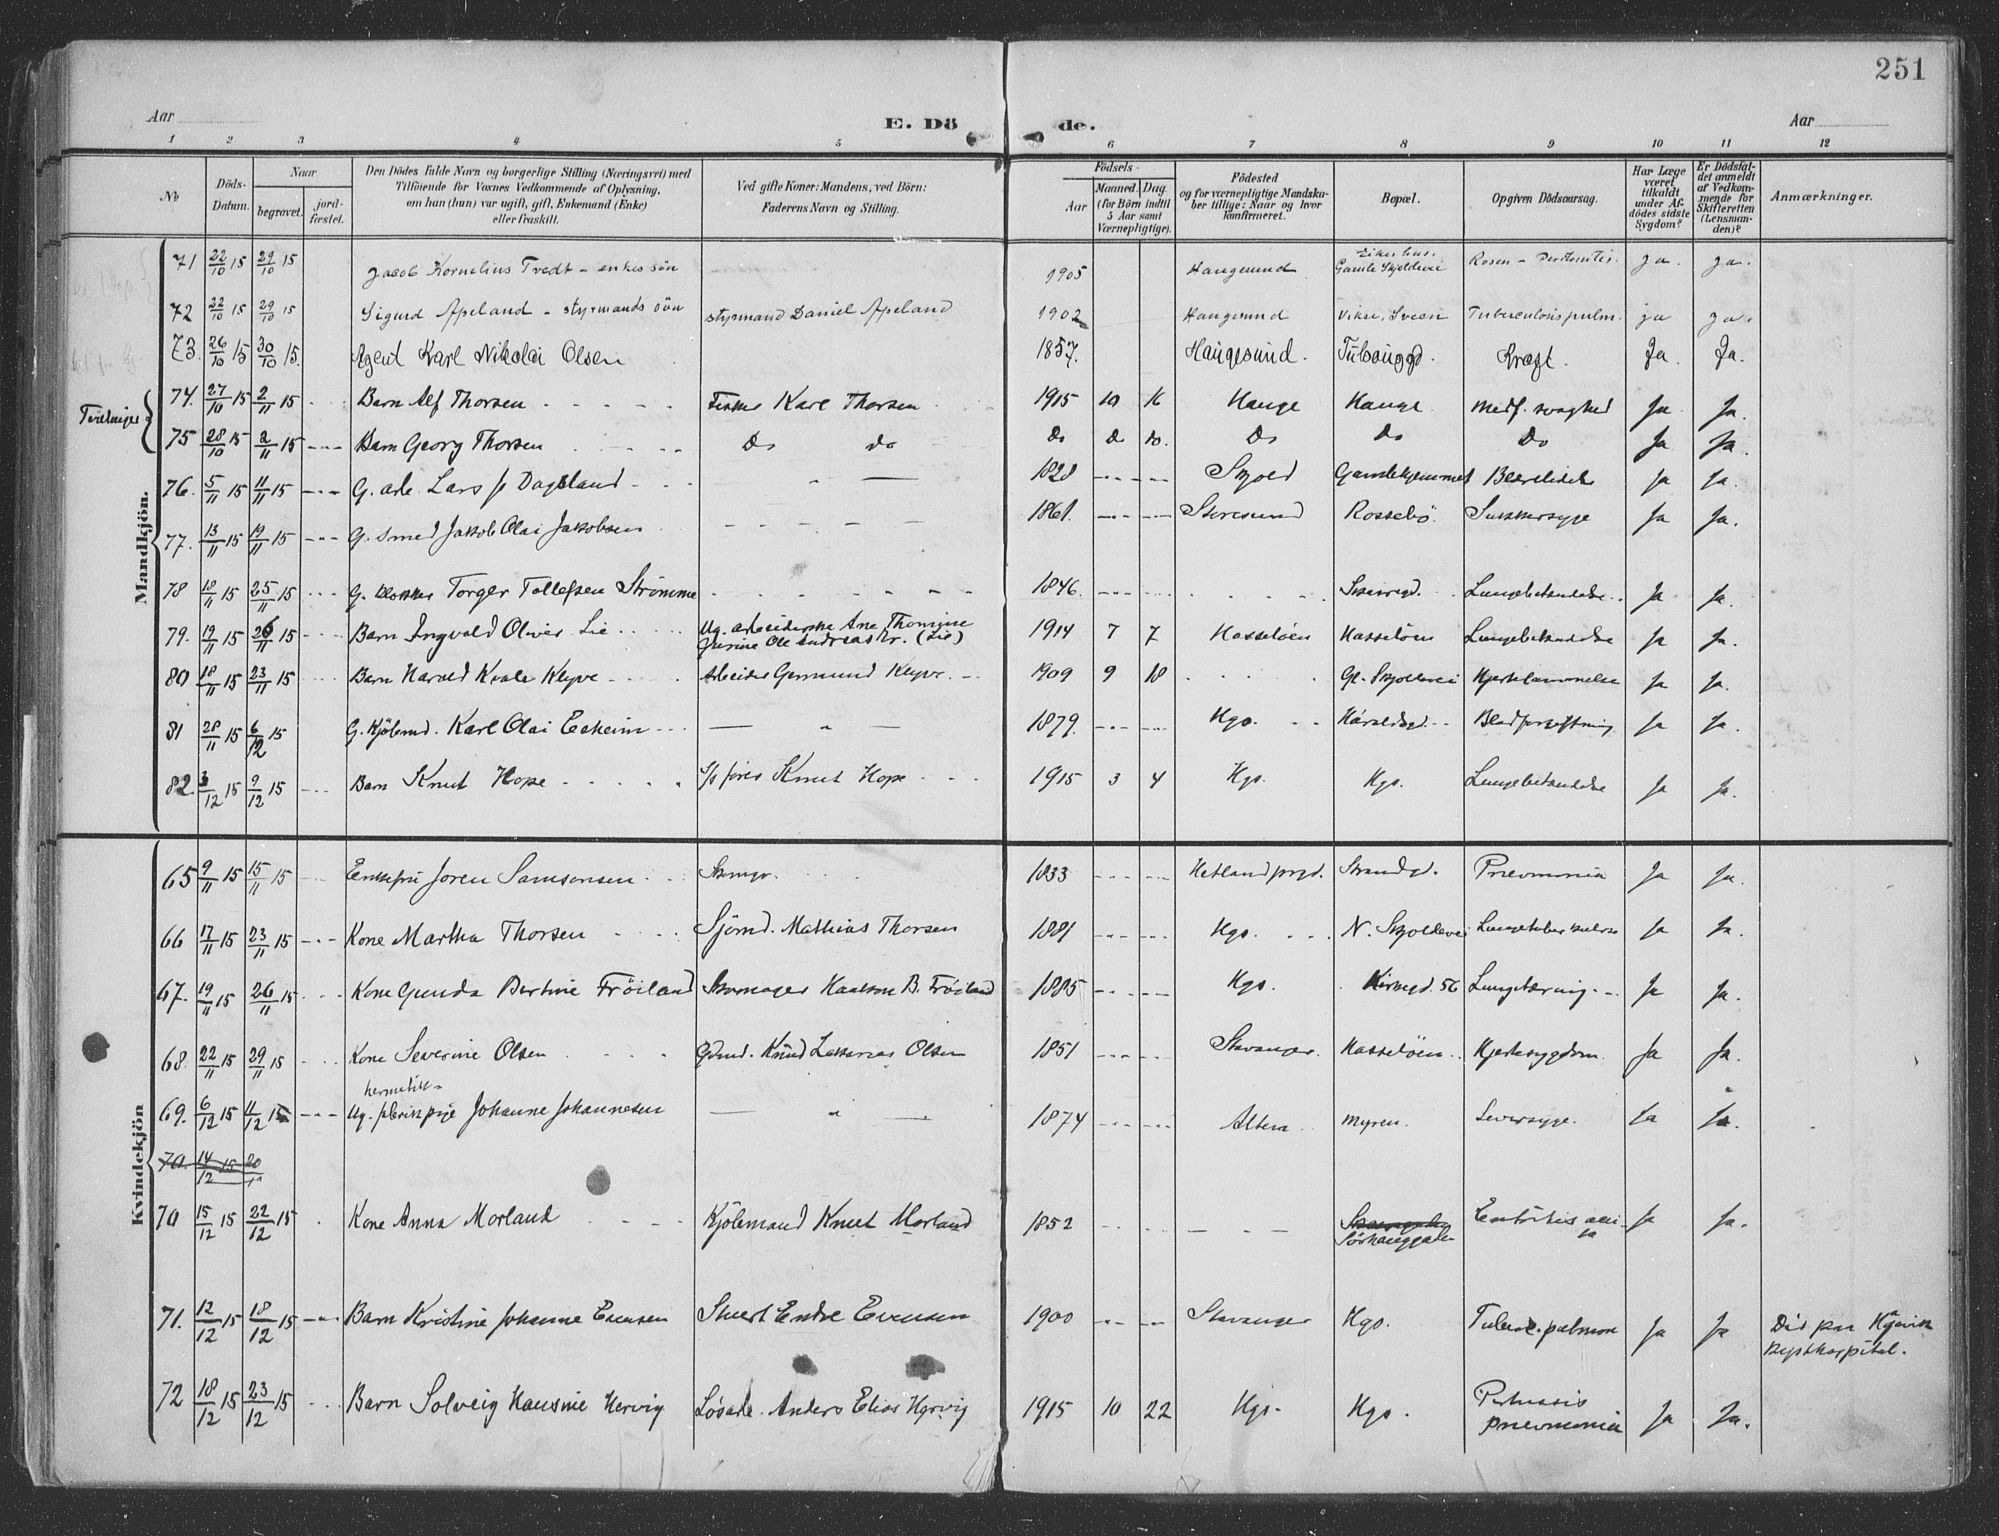 251
Aar
E. Dö
de.
Aar
1 2 3 4 5 6 7 8 9 10 11 12
No
Döds-Datum.
Naar begravet. jordfæstet.
Den Dödes fulde Navn og borgerlige Stilling (Næringsvei) med Tilföiende for Voxnes Vedkommende af Oplysning, om han (hun) var ugift, gift, Enkemand (Enke) eller fraskilt.
Ved gifte Koner: Mandens, ved Börn: Faderens Navn og Stilling.
Födsels-
Aar
Maaned. Dag. (for Börn indtil 5 Aar samt Værnepligtige).
Födested og for værnepligtige Mandskaber tillige: Naar og hvor konfirmeret.
Bopæl.
Opgiven Dödsaarsag.
Har Læge været tilkaldt under Afdödes sidste Sygdom?
Er Dödsfaldet anmeldt af Vedkommende for Skifteretten (Lensmanden)?
Anmærkninger.
Mandkjön.
71 22/10 15 29/10 15 Jacob Kornelius Tvedt - enkes sön 1905 Haugesund Gamle Skjoldevei Peritonitis. ja. ja.
72 22/10 15 29/10 15 Sigurd Apeland - styrmands sön styrmand Daniel Apeland 1902 Haugesund Sveen Tuberculosis pulm. ja ja.
73. 26/10 15 30/10 15. Agent Karl Nikolai Olsen 1857. Haugesund. Kræft. Ja. Ja.
74. 27/10 15 2/11 15 Barn Alf Thorsen Fisker Karl Thorsen 1915 10 16 Hauge Hauge Medf. svaghed Ja Ja.
75 28/10 15 2/11 15 Barn Georg Thorsen Do do Do Do do. Do Do Do Ja Ja.
76. 5/11 15 11/11 15 G. arb. Lars Dagsland " 1828 Skjold Gamlehjemmet Ja Ja.
77. 13/11 15 19/11 15 G. smed Jakob Olai Jakobsen 1861. Rossebö. Sukkersyge Ja Ja.
78 18/11 15 25/11 15 G. Torger Tollefsen Strömme 1846. Lungebetændelse. Ja Ja.
79. 19/11 15 26/11 15 Barn Ingvald Oliver Lie Ug. arbeiderske Ane Thomine (Lie) 1914 7 7 Hasseløen Hasseløen Lungebetændelse Ja Ja.
80 18/11 15 23/11 15 Barn Harald Kvale Klyve Arbeider Germund Klyve. 1909 9 18 Gl. Skjoldevei Hjertelammelse Ja Ja.
81 28/11 15 6/12 15 G. Kjöbmd. Karl Olai Eskeim " 1879. Hgs. Haraldsgd. Blodforgiftning Ja Ja.
82. 3/12 15 9/12 15 Barn Knut Hope Knut Hope 1915 3 4 Hgs. Hgs. Lungebetændelse Ja Ja.
Kvindekjön
65 9/11 15 15/11 15 Enkefru Joren Samsonsen 1833 Hetland prgd. Strandgd. Pneumonia Ja Ja.
66 17/11 15 23/11 15 Kone Martha Thorsen Sjömd. Mathias Thorsen 1881 Hgs. N. Skjoldevei Lungetuberkulose Ja Ja.
67. 19/11 15 26/11 15 Kone Gunda Bertine Fröiland Skomager Haakon B. Fröiland 1885 Hgs. Kirkegd. 56 Lungetæring Ja Ja.
68. 22/11 15 29/11 15 Kone Severine Olsen Gdmd. Knud Zakarias Olsen 1851 Stavanger. Hasseløen Hjertesygdom. Ja Ja.
hermetik-
69. 6/12 15 11/12 15 Ug. fabrikpige Johanne Johannesen " 1874 Altern Myren. Leversyge. Ja Ja.
70. 14/12 15 20/12
70 15/12 15 22/12 15 Kone Anna Morland Kjöbmand Knut Morland 1852 Sörhauggaten Ja Ja.
71. 12/12 15 18/12 15 Barn Kristine Johanne Evensen Stuert Endre Evensen 1900 Stavanger Hgs. Tuberc. pulmon Ja Ja Död paa
72 18/12 15 23/12 15 Barn Solveig Hervig Anders Elias Hervig 1915 10 22 Hgs. Hgs. Pertussis pneumonia Ja Ja.